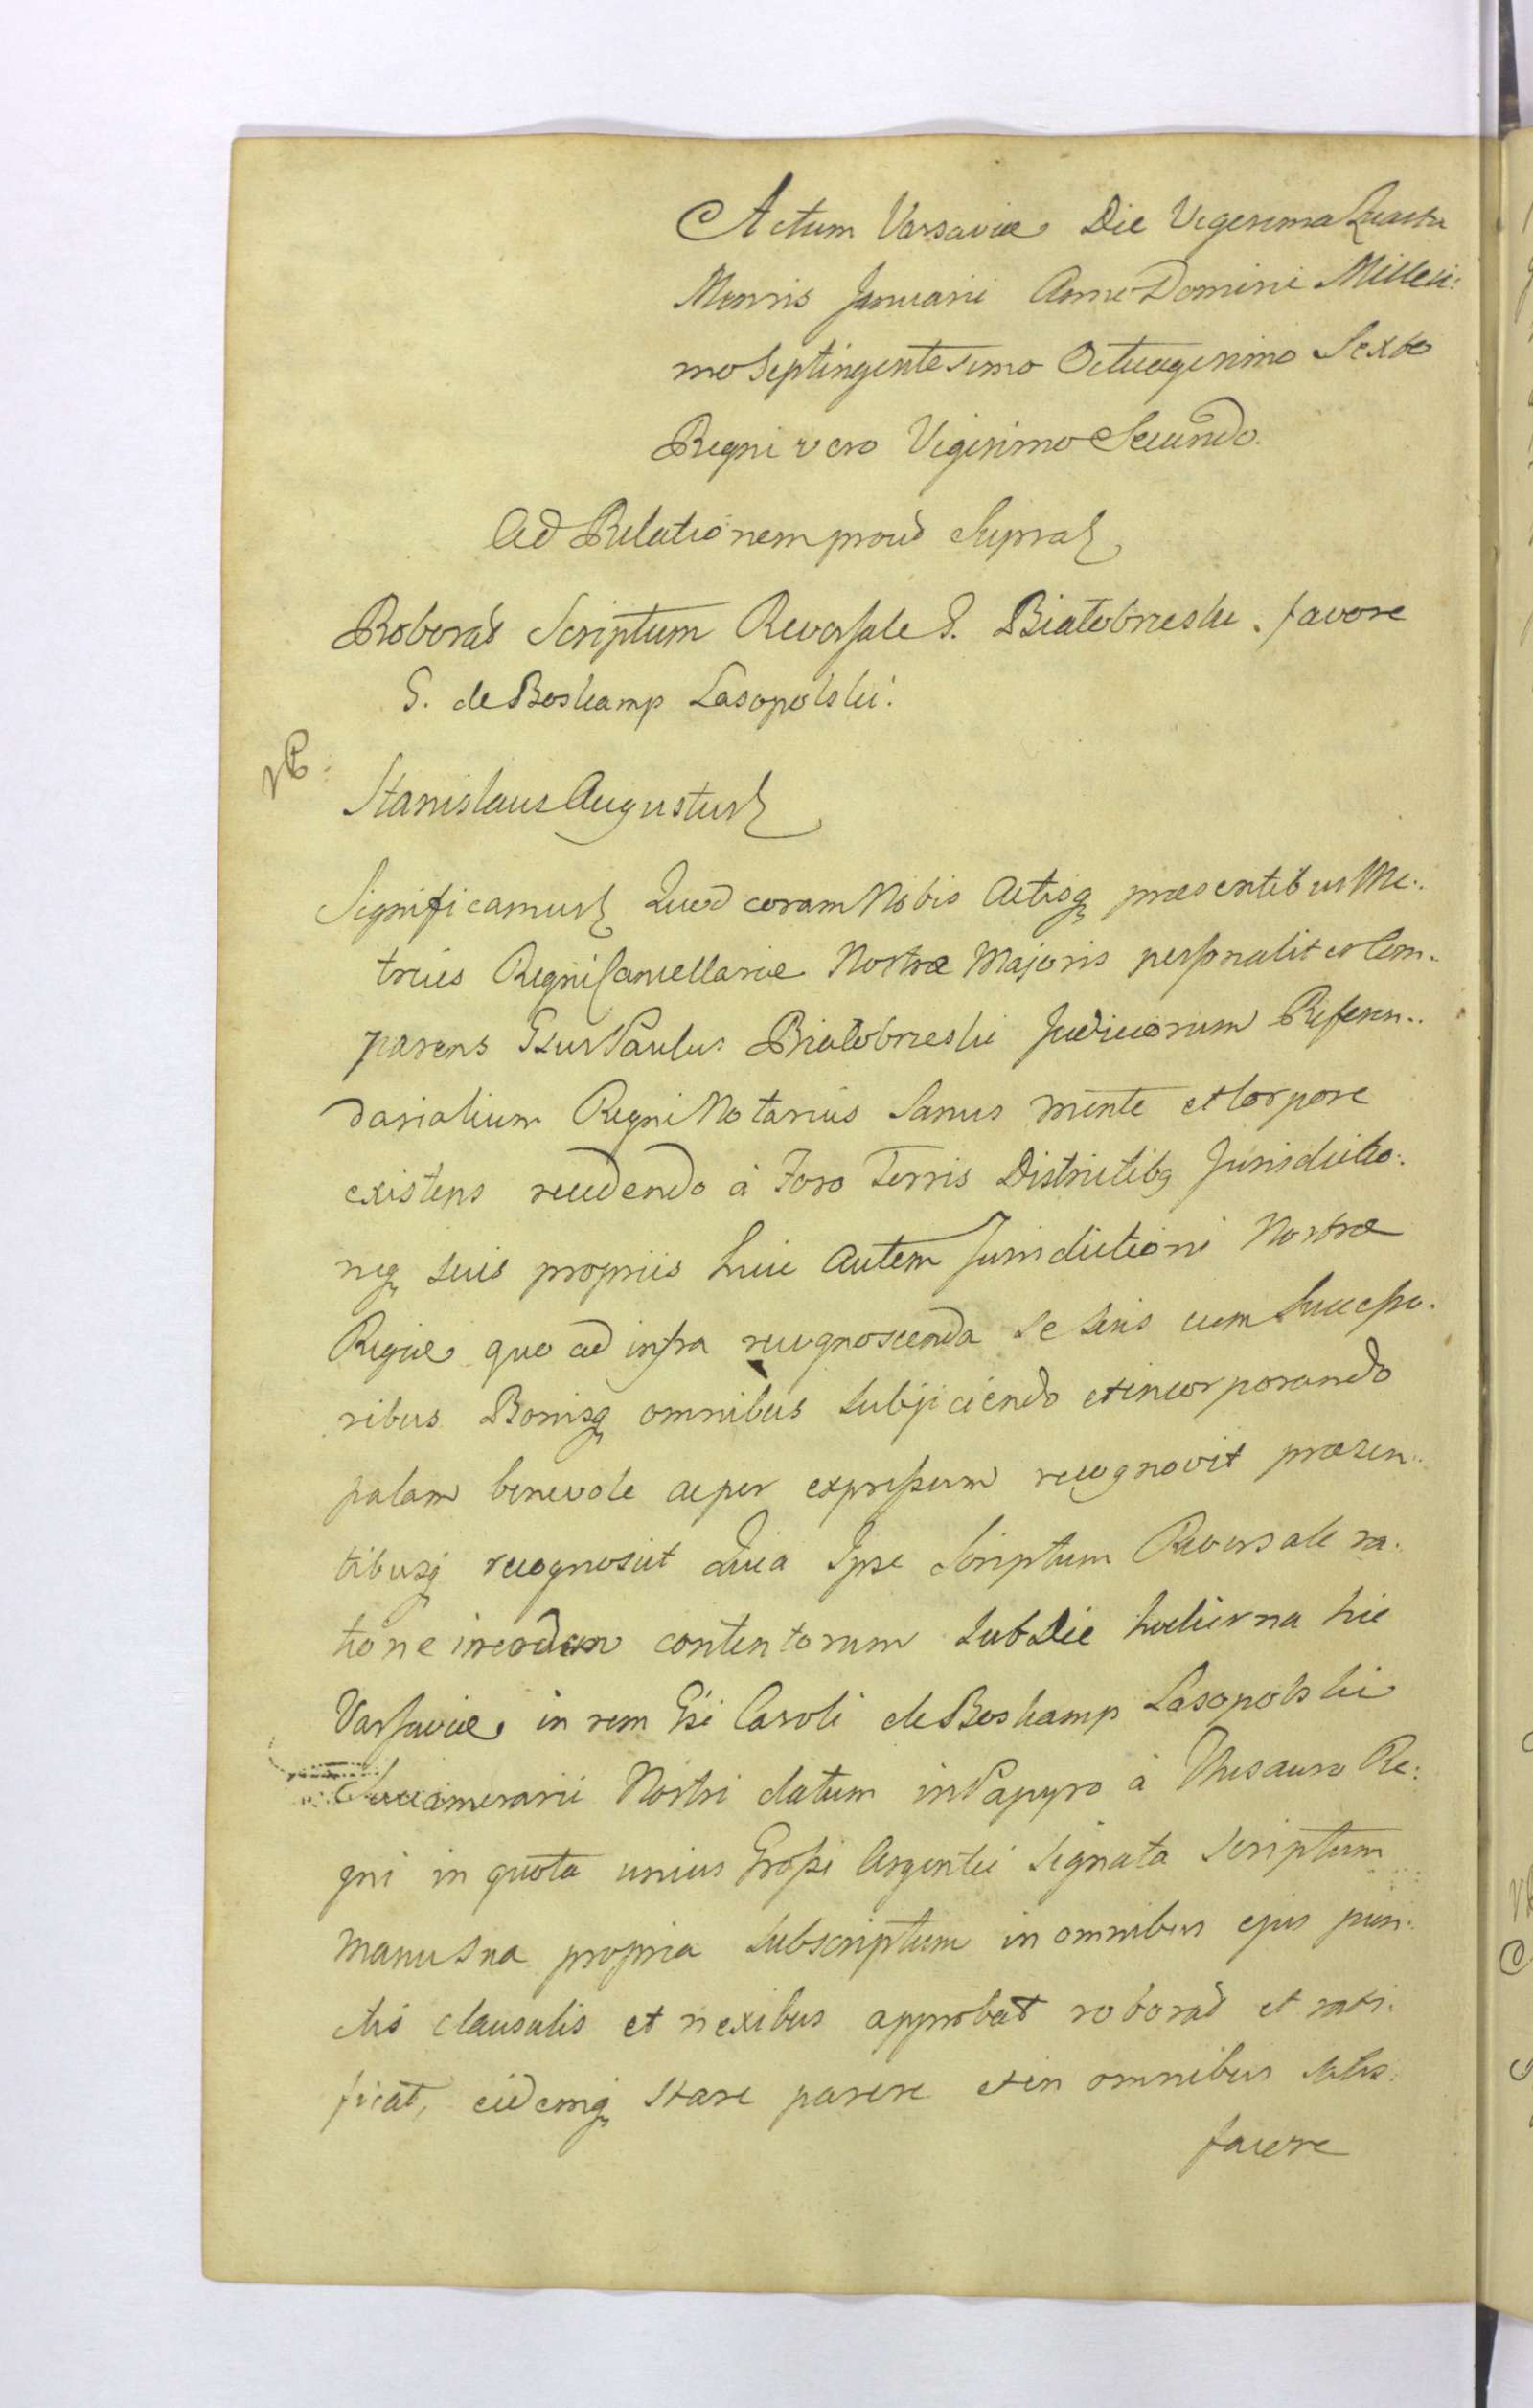 Actum Varsaviæ Die Vigesima Quarta
Mensis Januarii Anno Domini Millesi:
mo Septingentesimo Octuagesimo Sexto
Regni vero Vigesimo Secundo.
Ad Relationem prout Supra
Roborat Scriptum Reversale G. Białobrzeski favore
G. de Boskamp Lasopolski.
Stanislaus Augustus
Significamus Quod coram Nobis Actisq præsentibus Me:
trices Regni Cancellariæ Nostræ Majoris personaliter Com:
parens Gsus Paulus Białobrzeski Judiciorum Referen:
darialium Regni Notarius Sanus mente et Corpore
existens recedendo à Foro Terris Districtibq Jurisdictio:
neq suis propriis huic autem Jurisdictioni Nostræ
Regiæ quo ad infra recognoscenda se suis cum Successo:
ribus Bonisq omnibus subjiciendo et incorporando
palam benevole ac per expressum recognovit præsen:
tibusq recognoscit Quia Ipse Scriptum Reversale ra:
tione contentorum Sub Die hodierna hic
Varsaviæ in rem Gsi Caroli de Boskamp Lasopolski
Succamerarii Nostri datum in Papyro à Thesauro Re:
gni in quota unius Grossi Argentei Signata Scriptum
manu Sua propria Subscriptum in omnibus ejus pun:
ctis clausulis et nexibus approbat roborat et rati:
ficat, eidemq stare parere et in omnibus satis:
facere